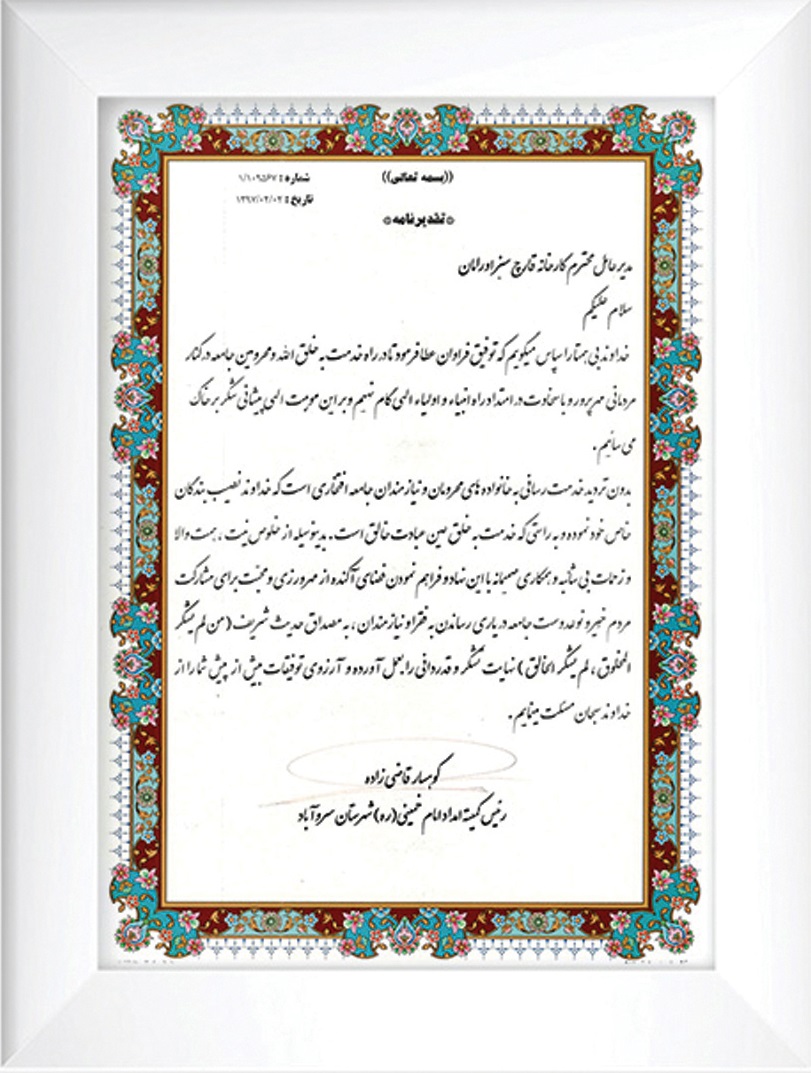 ((بسمه تعالی))
شماره: ۱/۱۰۹۵۶۷
تاریخ: ۱۳۹۷/۰۲/۰۲
*تقدیرنامه*
مدیر عامل محترم کارخانه قارچ سبز اورامان
سلام علیکم
خداوند بی همتا را سپاس میگویم که توفیق فراوان عطا فرمود تا در راه خدمت به خلق الله و محرومین جامعه در کنار
مردمانی مهرپرور و با سخاوت در امتداد راه انبیاء و اولیاء الهی گام نهیم و بر این موهبت الهی پیشانی شکر بر خاک
می سائیم .
بدون تردید خدمت رسانی به خانواده های محرومان و نیازمندان جامعه افتخاری است که خداوند نصیب بندگان
خاص خود نموده و به راستی که خدمت به خلق عین عبادت خالق است. بدینوسیله از خلوص نیت ، همت والا
و زحمات بی شائبه و همکاری صمیمانه با این نهاد و فراهم نمودن فضای آکنده از مهرورزی و محبت برای مشارکت
مردم خیر و نوعدوست جامعه در یاری رساندن به فقرا و نیازمندان ، به مصداق حدیث شریف (من لم یشکر
المخلوق ، لم یشکر الخالق) نهایت تشکر و قدردانی را بعمل آورده و آرزوی توفیقات بیش از پیش شما را از
خداوند سبحان مسئلت مینمایم .
کوهسار قاضی زاده
رئیس کمیته امداد امام خمینی (ره) شهرستان سروآباد